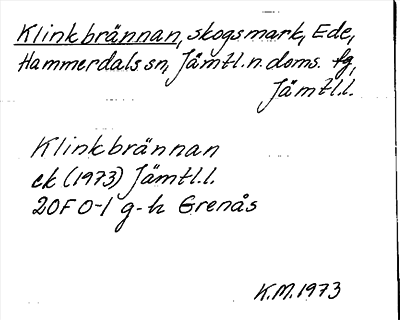 Klinkbrännan, skogsmark, Ede,
Hammerdals sn, Jämtl. n. doms. fg,
Jämtl. l.
Klinkbrännan
ek (1973) Jämtl. l.
20F 0-1 g-h Grenås
K.M. 1973